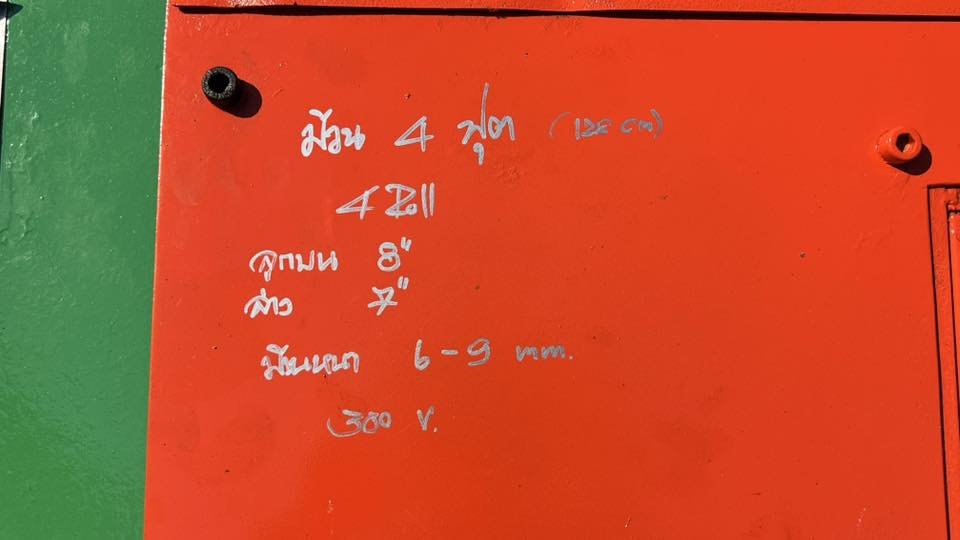 ม้วน 4 ฟุต (128 cm)
4 Roll
ลูกบน 8"
ล่าง 7"
ม้วนหนา 6-9 mm.
380 V.